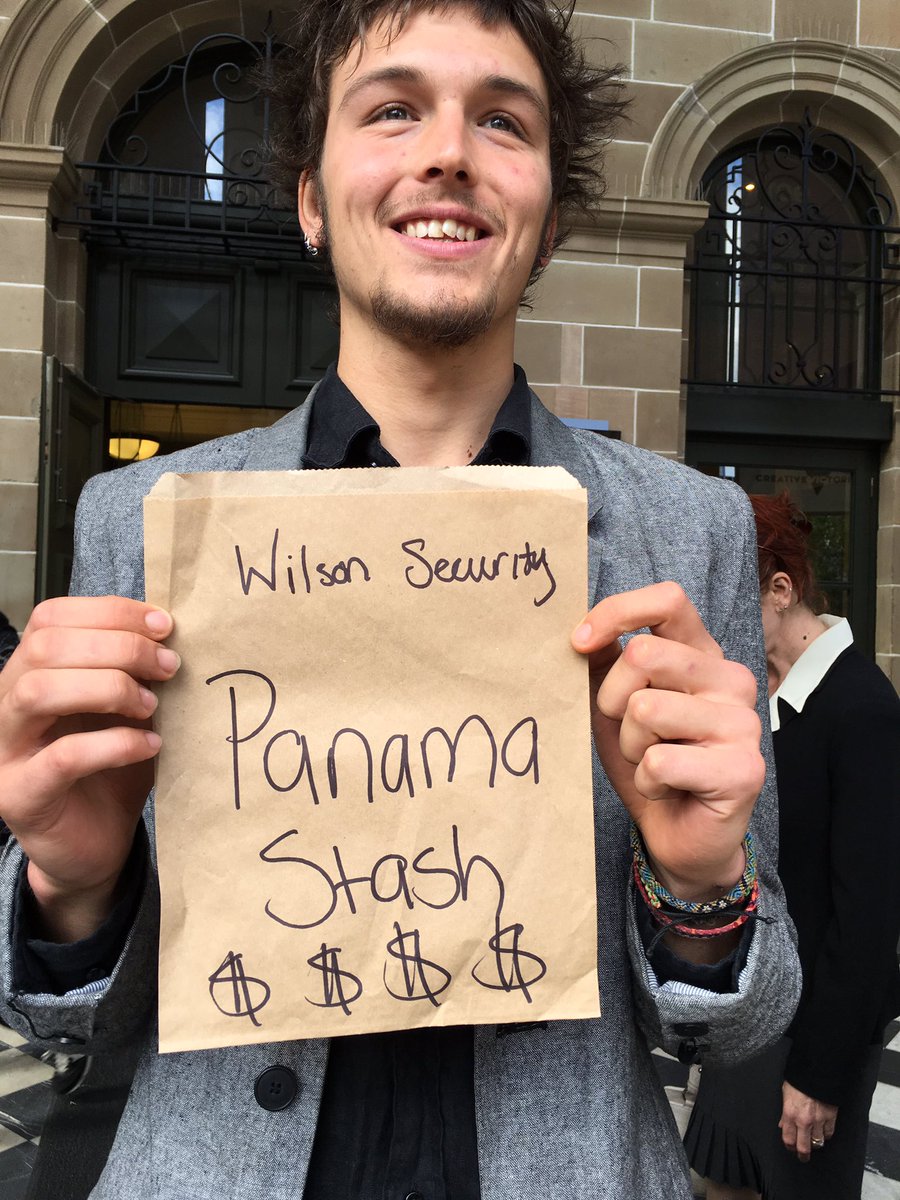 Wilson Security
Panama
Stash
$ $ $ $
CREATIVE VICTORI